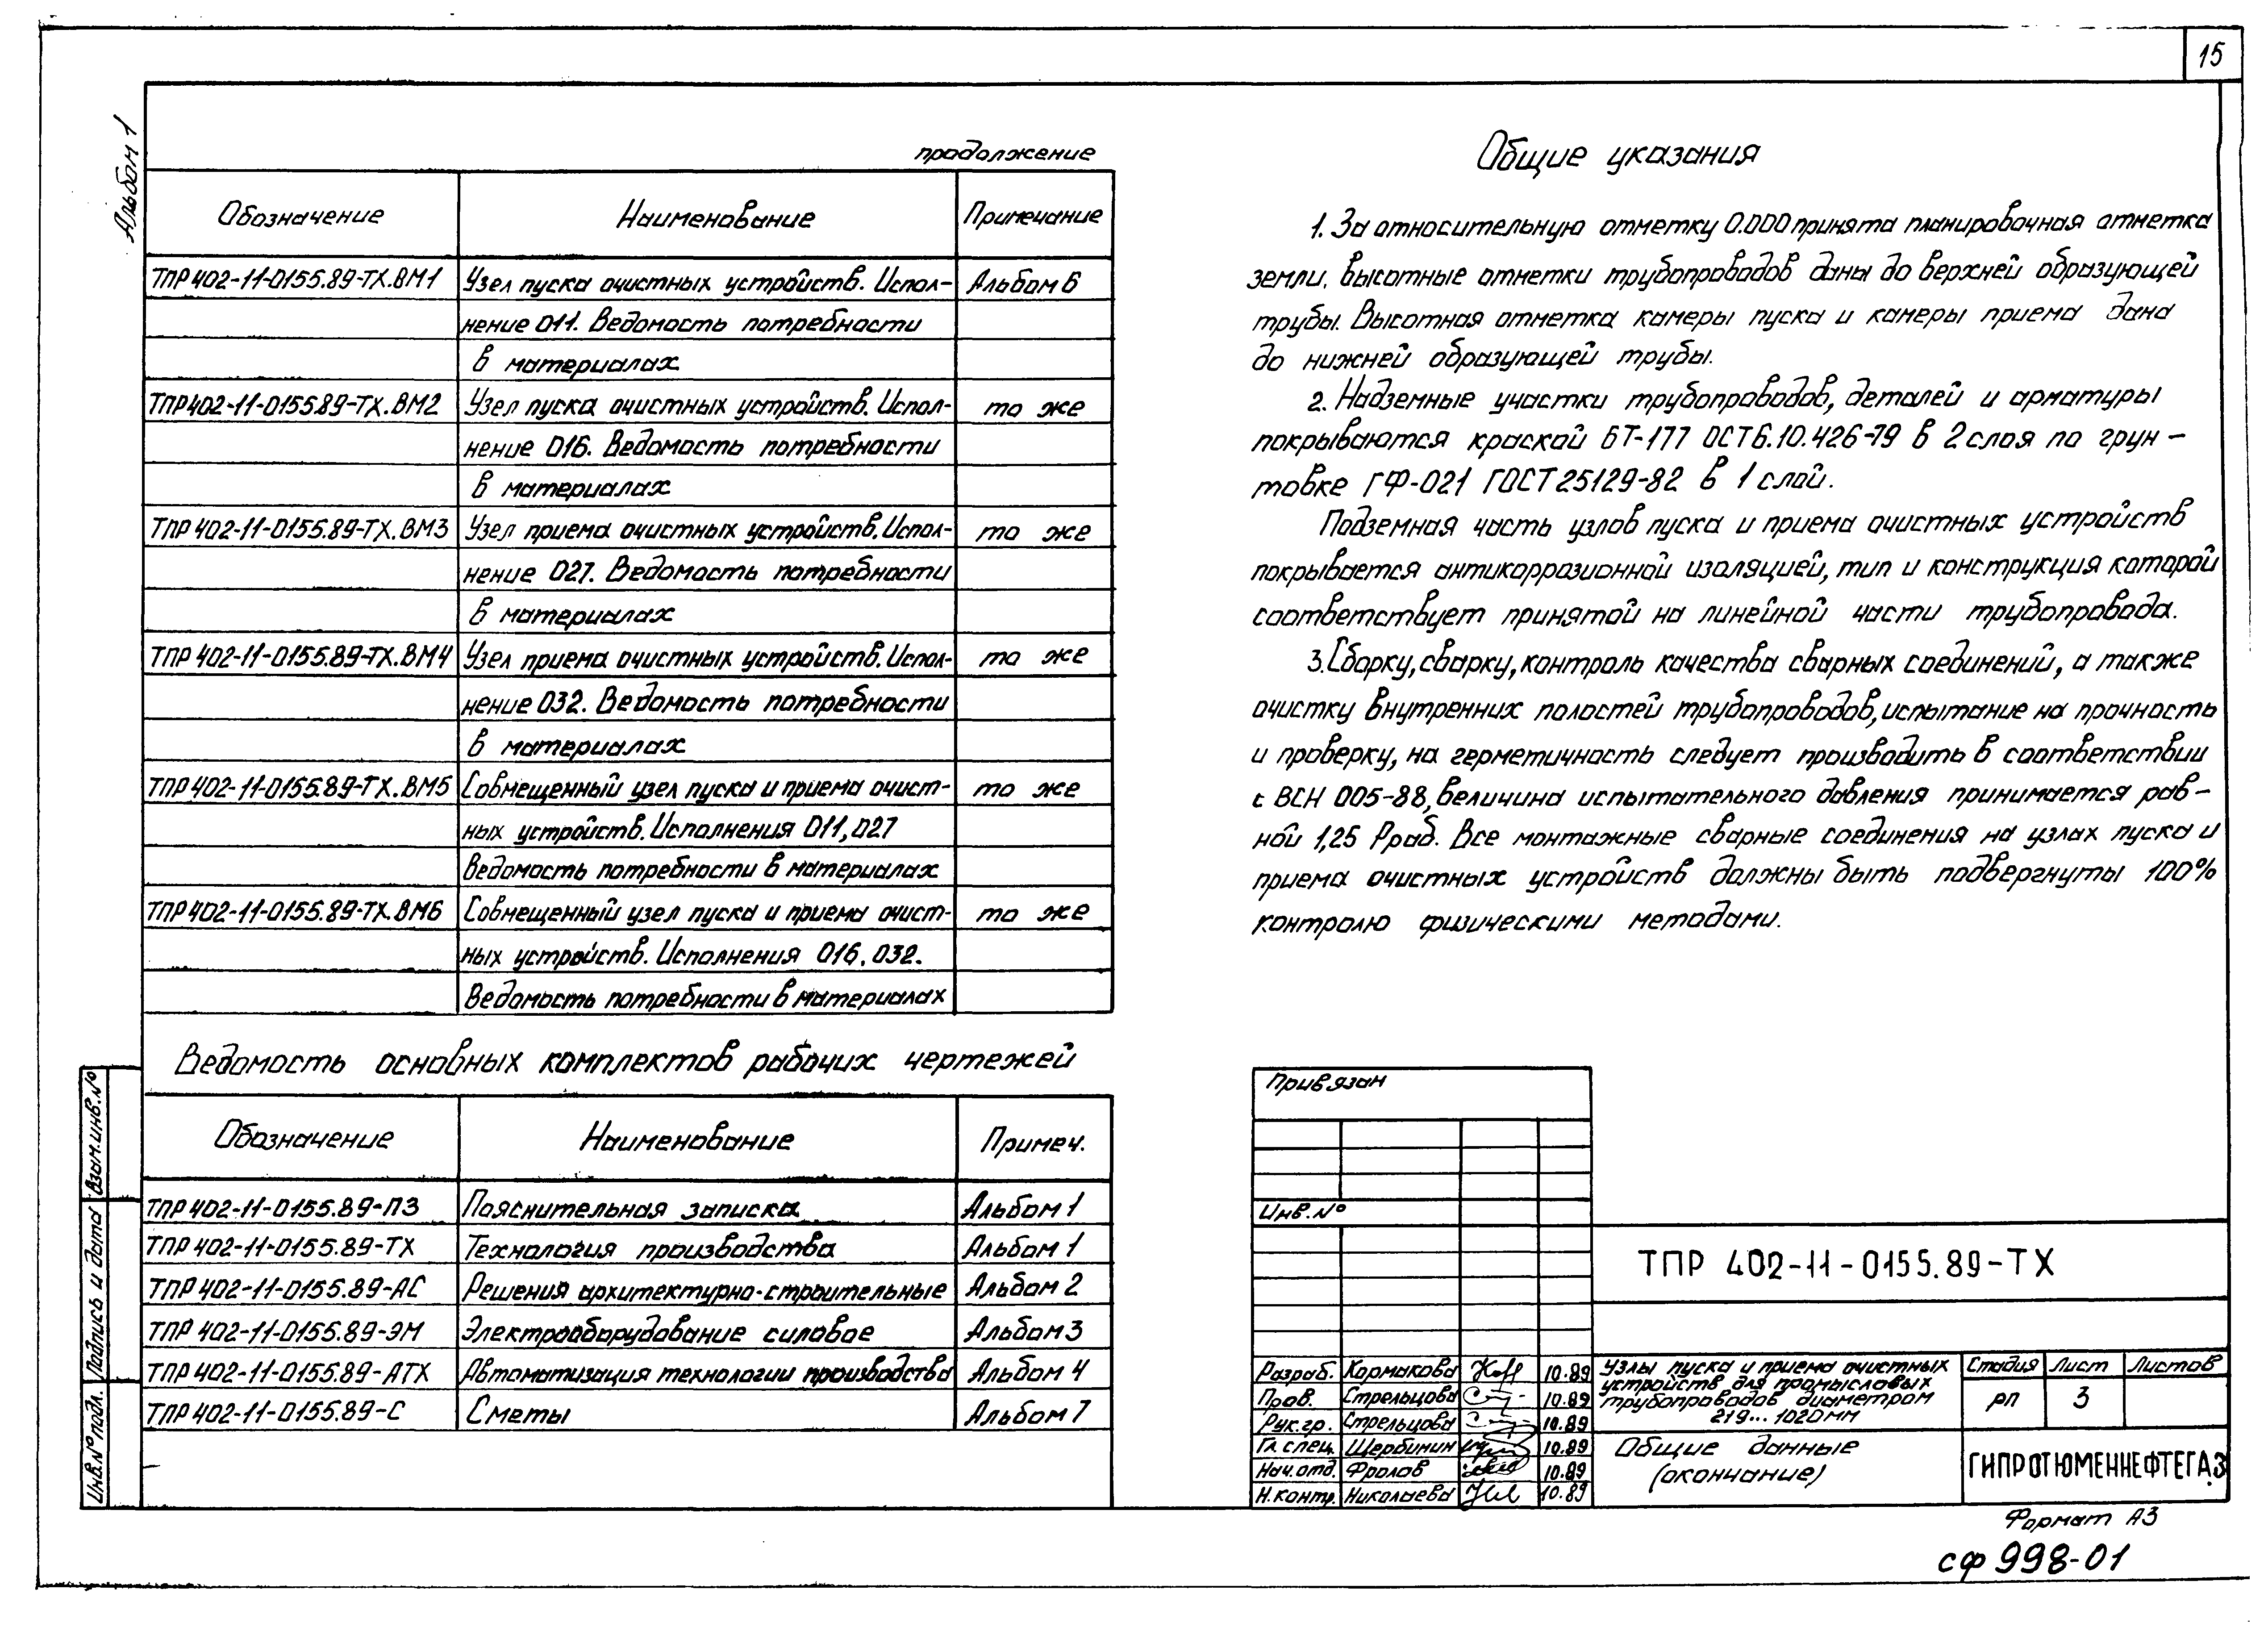 15
Альбом 1
продолжение
Обозначение Наименование Примечание
ТПР 402-11-0155.89-ТХ.ВМ1 Узел пуска очистных устройств. Испол- Альбом 6
нение 011. Ведомость потребности
в материалах
ТПР 402-11-0155.89-ТХ.ВМ2 Узел пуска очистных устройств. Испол- то же
нение 016. Ведомость потребности
в материалах
ТПР 402-11-0155.89-ТХ.ВМ3 Узел приема очистных устройств. Испол- то же
нение 027. Ведомость потребности
в материалах
ТПР 402-11-0155.89-ТХ.ВМ4 Узел приема очистных устройств. Испол- то же
нение 032. Ведомость потребности
в материалах
ТПР 402-11-0155.89-ТХ.ВМ5 Совмещенный узел пуска и приема очист- то же
ных устройств. Исполнения 011, 027
Ведомость потребности в материалах
ТПР 402-11-0155.89-ТХ.ВМ6 Совмещенный узел пуска и приема очист- то же
ных устройств. Исполнения 016, 032.
Ведомость потребности в материалах
Ведомость основных комплектов рабочих чертежей
Обозначение Наименование Примеч.
ТПР 402-11-0155.89-ПЗ Пояснительная записка Альбом 1
ТПР 402-11-0155.89-ТХ Технология производства Альбом 1
ТПР 402-11-0155.89-АС Решения архитектурно-строительные Альбом 2
ТПР 402-11-0155.89-ЭМ Электрооборудование силовое Альбом 3
ТПР 402-11-0155.89-АТХ Автоматизация технологии производства Альбом 4
ТПР 402-11-0155.89-С Сметы Альбом 7
Взам. инв. №
Подпись и дата
Инв. № подл.
Общие указания
1. За относительную отметку 0.000 принята планировочная отметка
земли. Высотные отметки трубопроводов даны до верхней образующей
трубы. Высотная отметка камеры пуска и камеры приема дана
до нижней образующей трубы.
2. Надземные участки трубопроводов, деталей и арматуры
покрываются краской БТ-177 ОСТ6.10.426-79 в 2 слоя по грун-
товке ГФ-021 ГОСТ 25129-82 в 1 слой.
Подземная часть узлов пуска и приема очистных устройств
покрывается антикоррозионной изоляцией, тип и конструкция которой
соответствует принятой на линейной части трубопровода.
3. Сборку, сварку, контроль качества сварных соединений, а также
очистку внутренних полостей трубопроводов, испытание на прочность
и проверку, на герметичность следует производить в соответствии
с ВСН 005-88, величина испытательного давления принимается рав-
ной 1,25 Рраб. Все монтажные сварные соединения на узлах пуска и
приема очистных устройств должны быть подвергнуты 100%
контролю физическими методами.
Привязан
Инв. №
ТПР 402-11-0155.89-ТХ
Разраб. Кормакова 10.89
Пров. Стрельцова 10.89
Рук. гр. Стрельцова 10.89
Гл. спец. Щербинин 10.89
Нач. отд. Фролов 10.89
Н. контр. Николаева 10.89
Узлы пуска и приема очистных
устройств для промысловых
трубопроводов диаметром
219... 1020 мм
Стадия Лист Листов
РП 3
Общие данные
(окончание)
ГИПРОТЮМЕННЕФТЕГАЗ
Формат А3
сф 998-01